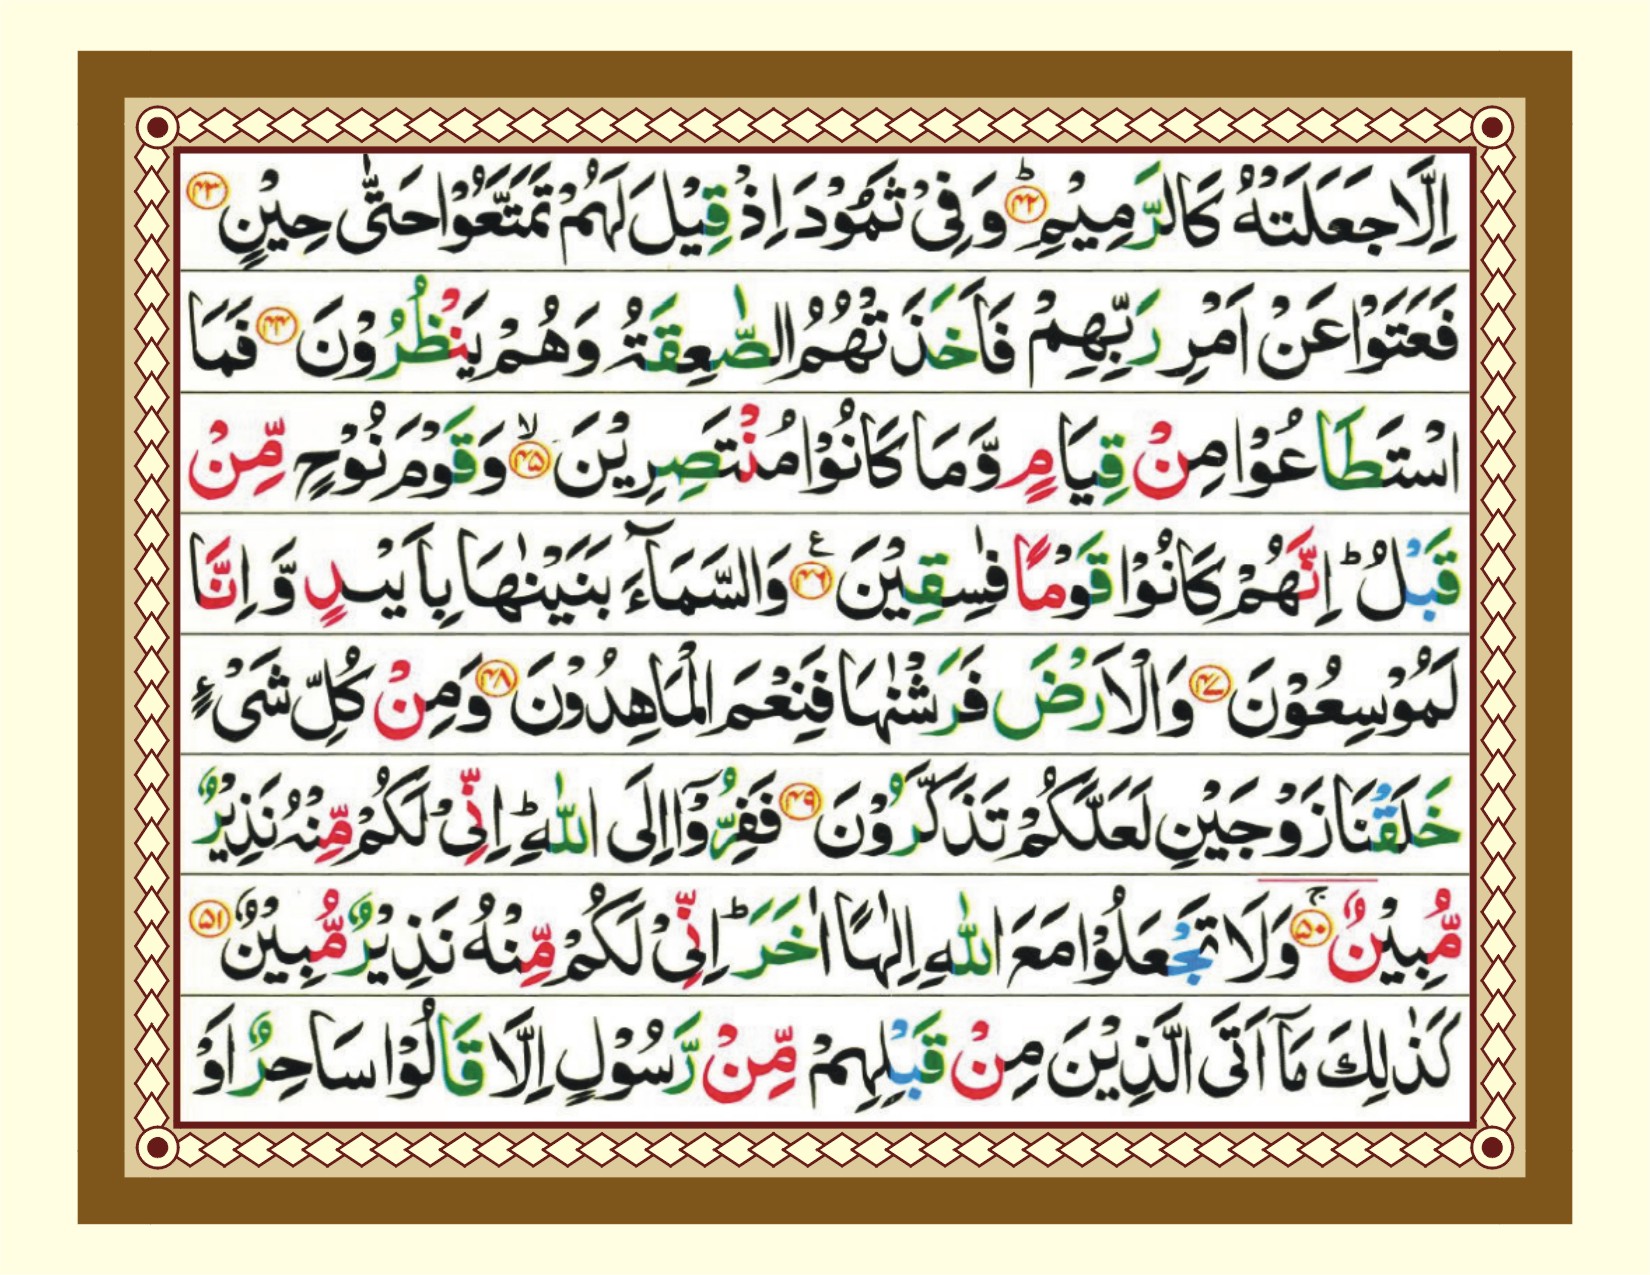 اِلَّا جَعَلَتْهُ كَالرَّمِيْمِ ؕ‏﴿۴۲﴾ وَفِىْ ثَمُوْدَ اِذْ قِيْلَ لَهُمْ تَمَتَّعُوْا حَتّٰى حِيْنٍ ﴿۴۳﴾
فَعَتَوْا عَنْ اَمْرِ رَبِّهِمْ فَاَخَذَتْهُمُ الصّٰعِقَةُ وَهُمْ يَنْظُرُوْنَ ﴿۴۴﴾ فَمَا
اسْتَطَاعُوْا مِنْ قِيَامٍ وَّمَا كَانُوْا مُنْتَصِرِيْنَ ۙ﴿۴۵﴾ وَقَوْمَ نُوْحٍ مِّنْ
قَبْلُ ؕ اِنَّهُمْ كَانُوْا قَوْمًا فٰسِقِيْنَ ﴿۴۶﴾ ع وَالسَّمَآءَ بَنَيْنٰهَا بِاَيْىدٍ وَّاِنَّا
لَمُوْسِعُوْنَ ﴿۴۷﴾ وَالْاَرْضَ فَرَشْنٰهَا فَنِعْمَ الْمَاهِدُوْنَ ﴿۴۸﴾ وَمِنْ كُلِّ شَىْءٍ
خَلَقْنَا زَوْجَيْنِ لَعَلَّكُمْ تَذَكَّرُوْنَ ﴿۴۹﴾ فَفِرُّوْۤا اِلَى اللّٰهِ ؕ اِنِّىْ لَكُمْ مِّنْهُ نَذِيْرٌ
مُّبِيْنٌ ۚ﴿۵۰﴾ وَلَا تَجْعَلُوْا مَعَ اللّٰهِ اِلٰهًا اٰخَرَ ؕ اِنِّىْ لَكُمْ مِّنْهُ نَذِيْرٌ مُّبِيْنٌ ﴿۵۱﴾
كَذٰلِكَ مَاۤ اَتَى الَّذِيْنَ مِنْ قَبْلِهِمْ مِّنْ رَّسُوْلٍ اِلَّا قَالُوْا سَاحِرٌ اَوْ